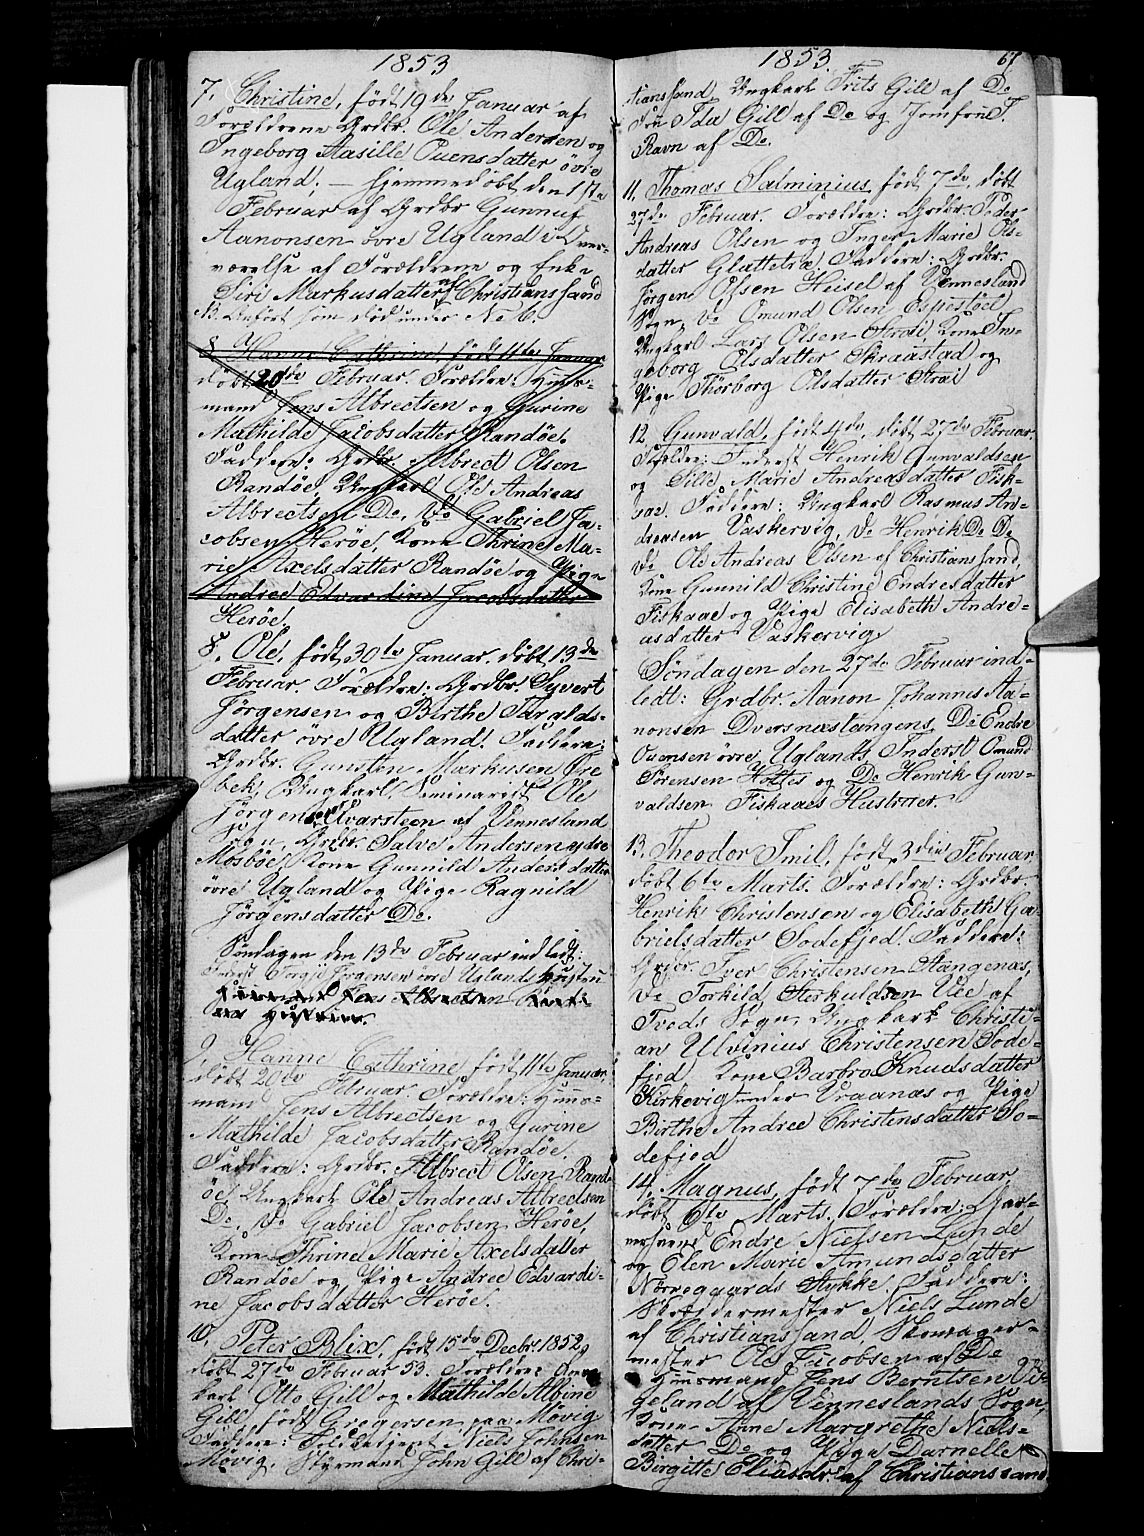 1853
7. Christine, født 19de Januar af
Forældrene Grdbr. Ole Andersen og
Ingeborg Aasille Ouensdatter øvre
Ugland. — hjemmedøbt den 17de
Februar af Grdbr Gunnuf
Aanonsen øvre Ugland i Over-
værelse af Forældrene og Enke
Siri Markusdatter af Christianssand
B. Anført som død under No 6.
8. Hanne Cathrine, født 11te Januar
døbt 20de Februar. Forældre: Huus-
mand Jens Albrectsen og Gurine
Mathilde Jacobsdatter Randøe.
Faddere: Grdbr. Albrect Olsen
Randøe, Ungkarl Ole Andreas
Albrectsen De, De Gabriel Ja-
cobsen Herøe, Kone Thrine Ma-
rie Axelsdatter Randøe og Pige
Andrea Edvardine Jacobsdatter
Herøe.
8. Ole, født 30te Januar, døbt 13de
Februar. Forældre: Grdbr. Syvert
Jørgensen og Birthe Targlds-
datter øvre Ugland. Faddere:
Grdbr. Gunsten Markusen Øre
bek, Ungkarl, Seminarist Ole
Jørgensen Kvarsteen af Vennesland
Sogn, Grdbr. Salve Andersen ydre
Mosbøe, Kone Gunnild Andersdatter
øvre Ugland og Pige Ragnild
Jørgensdatter De.
Søndagen den 13de Februar indledt:
Inderst Tergje Jørgensen øvre Uglands Hustru
Jens Albrectsen
9. Hanne Cathrine, født 11te Januar,
døbt 20de Februar. Forældre: Huus-
mand Jens Albrectsen og Gurine
Mathilde Jacobsdatter Randøe.
Faddere: Grdbr. Albrect Olsen Rand-
øe, Ungkarl Ole Andreas Albrectsen
De, De Gabriel Jacobsen Herøe,
Kone Thrine Marie Axelsdatter
Randøe og Pige Andrea Edvardi-
ne Jacobsdatter Herøe.
10. Peter Blix, født 15de Decbr 1852,
døbt 27de Februar 53. Forældre: Ung-
karl Otto Gill og Mathilde Albine
Gill, født Gregersen paa Møvig
Faddere: Toldbetjent Niels Johnsen
Møvig, Styrmand John Gill af Chri-
1853
67
stianssand, Ungkarl Frits Gill af De
Frue Ida Gill af De og Jomfru T.
Ravn af De.
11. Thomas Salminius, født 7de, døbt
27de Februar. Forældre: Grdbr. Peder
Andreas Olsen og Inger Marie Ols-
datter Glattetræ. Faddere: Grdbr.
Jørgen Olsen Heisel af Vennesland
Sogn, De Omund Olsen Espestøel
Ungkarl Lars Olsen Strai, Kone In-
geborg Olsdatter Skraastad og
Pige Thorborg Olsdatter Strai
12. Gunvald, født 4de, døbt 27de Februar.
Forældre: Inderst Henrik Gunvaldsen
og Sille Marie Andreasdatter Fisk-
aae. Faddere: Ungkarl Rasmus An-
dreasen Vaskervig, De Henrik De De
De Ole Andreas Olsen af Christianssand,
Kone Gunnild Christine Endresdatter
Fiskaae og Pige Elisabeth Andre-
asdatter Vaskervig.
Søndagen den 27de Februar ind-
ledt: Grdbr. Aanon Johannes Aa-
nonsen Dversnæstangens, De Endre
Ouensen øvre Uglands, Inderst Omund
Sørensen Holtes og De Henrik Gun-
valdsen Fiskaaes Hustruer.
13. Theodor Emil, født 3die Februar
døbt 6te Marts. Forældre: Grdbr.
Henrik Christensen og Elisabeth Ga-
brielsdatter Sodefjed. Faddere:
Grdbr. Iver Christensen Stangenæs,
De Torkild Terkuldsen Vee af
Tveds Sogn, Ungkarl Christi-
an Ulvinius Christensen Sode-
fjed Kone Barbro Knudsdatter
Kirkevig under Vraanæs og Pige
Birthe Andrea Christensdatter So-
defjed
14. Magnus, født 7de Februar,
døbt 6te Marts. Forældre: Gar-
versvend Endre Nielsen Lunde
og Elen Marie Amundsdatter
Nørregaards Stykke. Faddere:
Skræddermester Niels Lunde
af Christianssand, Skomager-
mester Ole Jacobsen af De
Huusmand Jens Berntsen Vi-
geland af Venneslands Sogn,
Kone Anne Margrethe Niels-
datter De og Pige Darnelle
Birgitte Eliasdr. af Christianssand